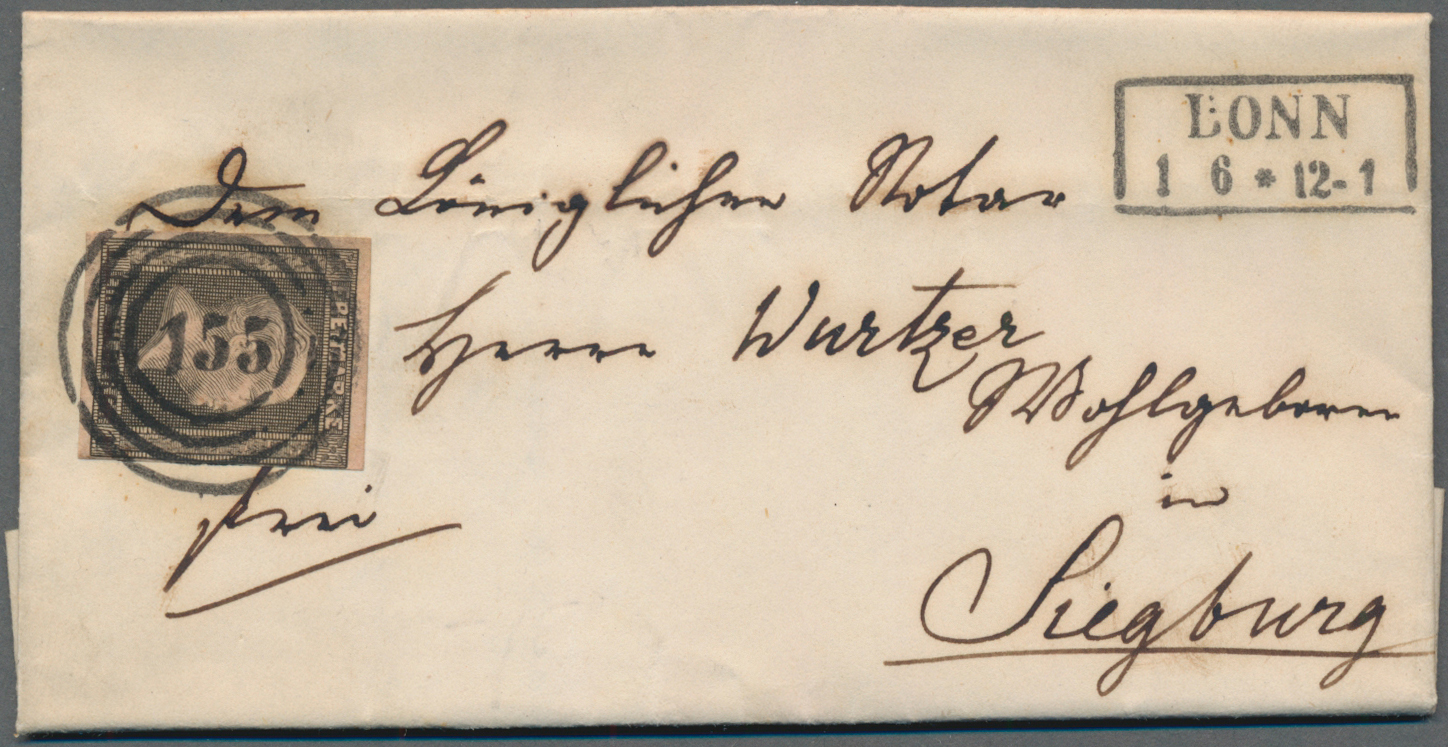 BONN
1 6 * 12-1
Dem Königlichen Notar
Herrn Wurtzer
Wohlgeboren
in
Siegburg
frei
155
FREIMARKE